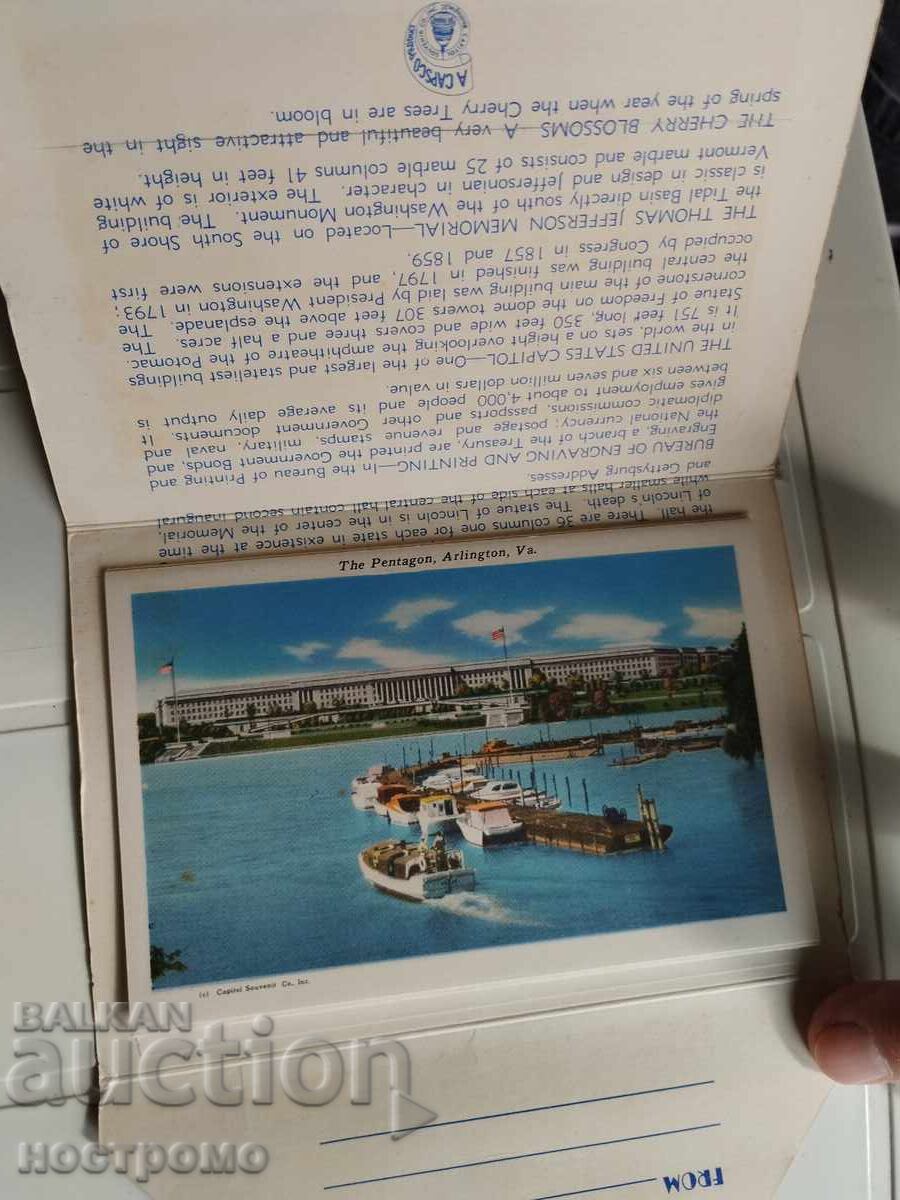 the hall. There are 36 columns one for each state in existence at the time
of Lincoln's death. The statue of Lincoln is in the center of the Memorial,
while smaller halls at each side of the central hall contain second inaugural
and Gettysburg Addresses.
BUREAU OF ENGRAVING AND PRINTING—In the Bureau of Printing and
Engraving, a branch of the Treasury, are printed the Government Bonds, and
the National currency; postage and revenue stamps, military, naval and
diplomatic commissions, passports and other Government documents. It
gives employment to about 4,000 people and its average daily output is
between six and seven million dollars in value.
THE UNITED STATES CAPITOL—One of the largest and stateliest buildings
in the world, sets on a height overlooking the amphitheatre of the Potomac.
It is 751 feet long, 350 feet wide and covers three and a half acres. The
Statue of Freedom on the dome towers 307 feet above the esplanade. The
cornerstone of the main building was laid by President Washington in 1793;
the central building was finished in 1797, and the extensions were first
occupied by Congress in 1857 and 1859.
THE THOMAS JEFFERSON MEMORIAL—Located on the South Shore of
the Tidal Basin directly south of the Washington Monument. The building
is classic in design and Jeffersonian in character. The exterior is of white
Vermont marble and consists of 25 marble columns 41 feet in height.
THE CHERRY BLOSSOMS—A very beautiful and attractive sight in the
spring of the year when the Cherry Trees are in bloom.
A CAPSCO PRODUCT
The Pentagon, Arlington, Va.
(c) Capitol Souvenir Co., Inc.
BALKAN
auction
ностромо
FROM